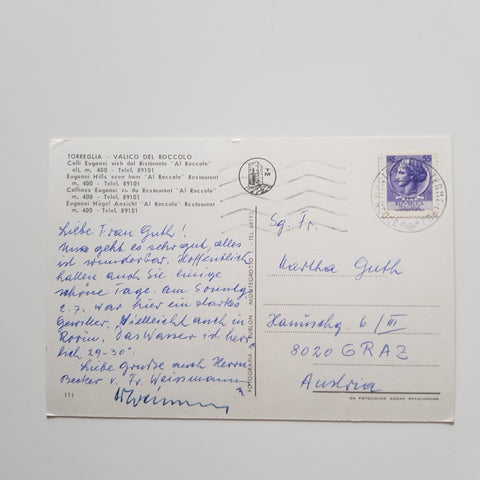 TORREGLIA - VALICO DEL ROCCOLO
Colli Euganei visti dal Ristorante "Al Roccolo"
alt. m. 400 - Telef. 89101
Euganei Hills seen from "Al Roccolo" Restaurant
m. 400 - Telef. 89101
Collines Euganei vu du Restaurant "Al Roccolo"
m. 400 - Telef. 89101
Euganei Hügel Ansicht "Al Roccolo" Restaurant
m. 400 - Telef. 89101
Liebe Frau Guth!
Uns geht es sehr gut, alles
ist wunderbar. Hoffentlich
hatten auch Sie einige
schöne Tage. Am Sonntag
2.7. war hier ein starkes
Gewitter. Vielleicht auch in
das Wasser ist herr
lich 29-30°.
Liebe Grüsse auch Herrn
Becker v. Fr. Weissmann
111
FOTOGRAFIA FURLON MONTEGROTTO - TEL.
M
55 55
Sg. Fr.
Martha Guth
6/III
8020 GRAZ
Austria
DA FOTOCOLOR KODAK EKTACHROME